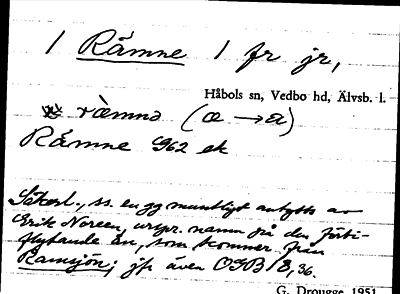 1 Rämne 1 fr jr,
Håbols sn, Vedbo hd, Älvsb. l.
ræ̀mnə (æ → a)
Rämne 962 ek
Säkerl., ss. en gg muntligt antytts av
Erik Noreen, urspr. namn på den förbi-
flytande ån, som kommer från
Ramsjön; jfr även OGB 18, 36.
G. Drougge 1951